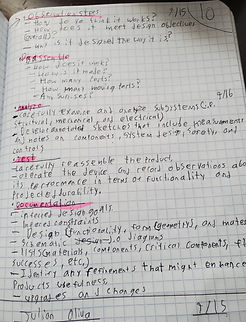 • observation steps 9/15 10
- How do you think it works?
- How does it meet design objectives (overall)
- Why is it designed the way it is?
• Disassemble
- How does it work?
- How is it made?
- How many parts?
- How many moving parts?
- Any surprises?
• Analyze 9/16
- Carefully examine and analyze subsystems (i.e.
structural, mechanical, and electrical)
- Develop annotated sketches that include measurements
and notes on components, system design, safety, and
controls
• Test
- Carefully reassemble the product,
- operate the device and record observations about
its performance in terms of functionality and
Projected durability.
• Documentation
- inferred design goals
- Inferred constraints
- Design (functionality, form (geometry), and materials
- Schematic diagrams
- Lists (materials, components, critical components,
successes, etc.)
- Identify any refinements that might enhance
Products usefulness
- upgrades and changes
Julian Oliva 9/15